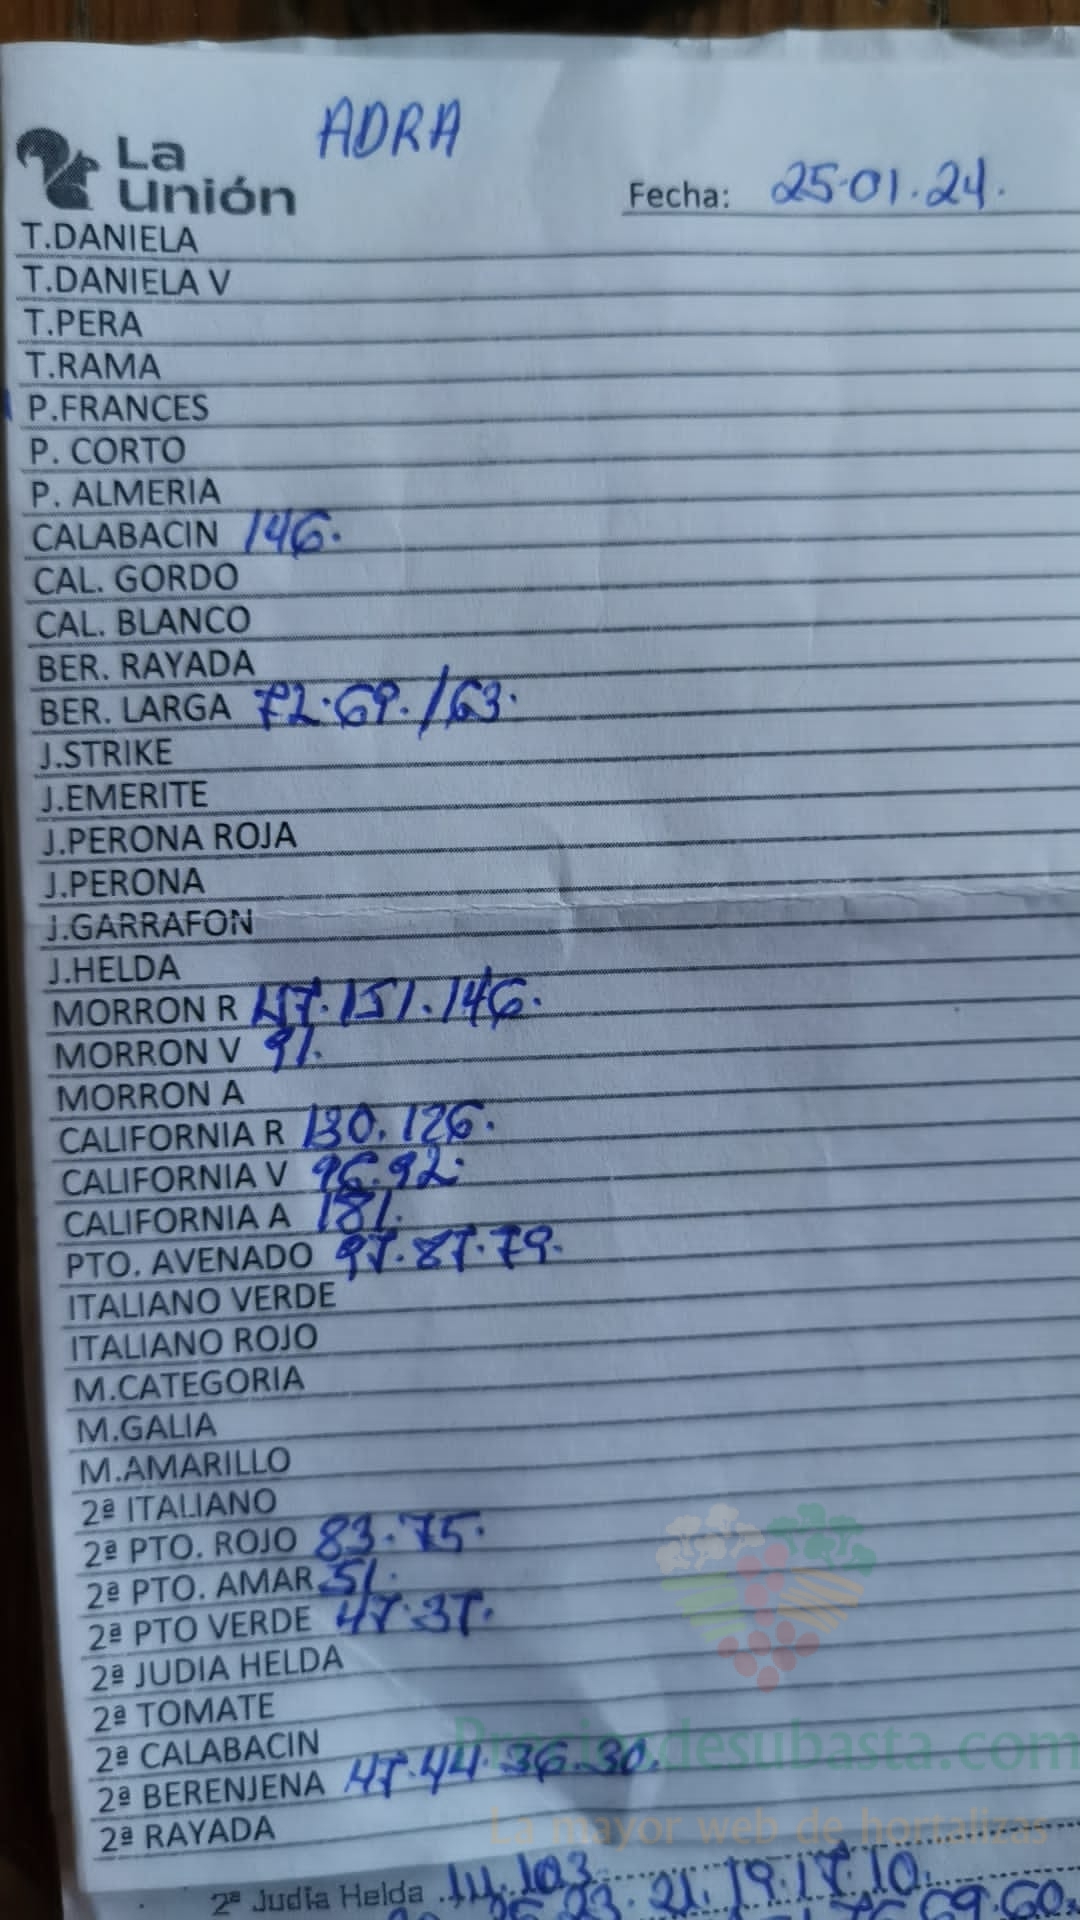 ADRA
La Unión
Fecha: 25.01.24.
T.DANIELA
T.DANIELA V
T.PERA
T.RAMA
P.FRANCES
P. CORTO
P. ALMERIA
CALABACIN 146.
CAL. GORDO
CAL. BLANCO
BER. RAYADA
BER. LARGA 72.69./63.
J.STRIKE
J.EMERITE
J.PERONA ROJA
J.PERONA
J.GARRAFON
J.HELDA
MORRON R 151.146.
MORRON V 91.
MORRON A
CALIFORNIA R 130.126.
CALIFORNIA V 96.92.
CALIFORNIA A 181.
PTO. AVENADO 97.87.79.
ITALIANO VERDE
ITALIANO ROJO
M.CATEGORIA
M.GALIA
M.AMARILLO
2ª ITALIANO
2ª PTO. ROJO 83.75.
2ª PTO. AMAR 51.
2ª PTO VERDE 47.37.
2ª JUDIA HELDA
2ª TOMATE
2ª CALABACIN
2ª BERENJENA 47.44.36.30.
2ª RAYADA
Preciosdesubasta.com
La mayor web de hortalizas
2ª Judia Helda
21.19.17.10.
69.60.